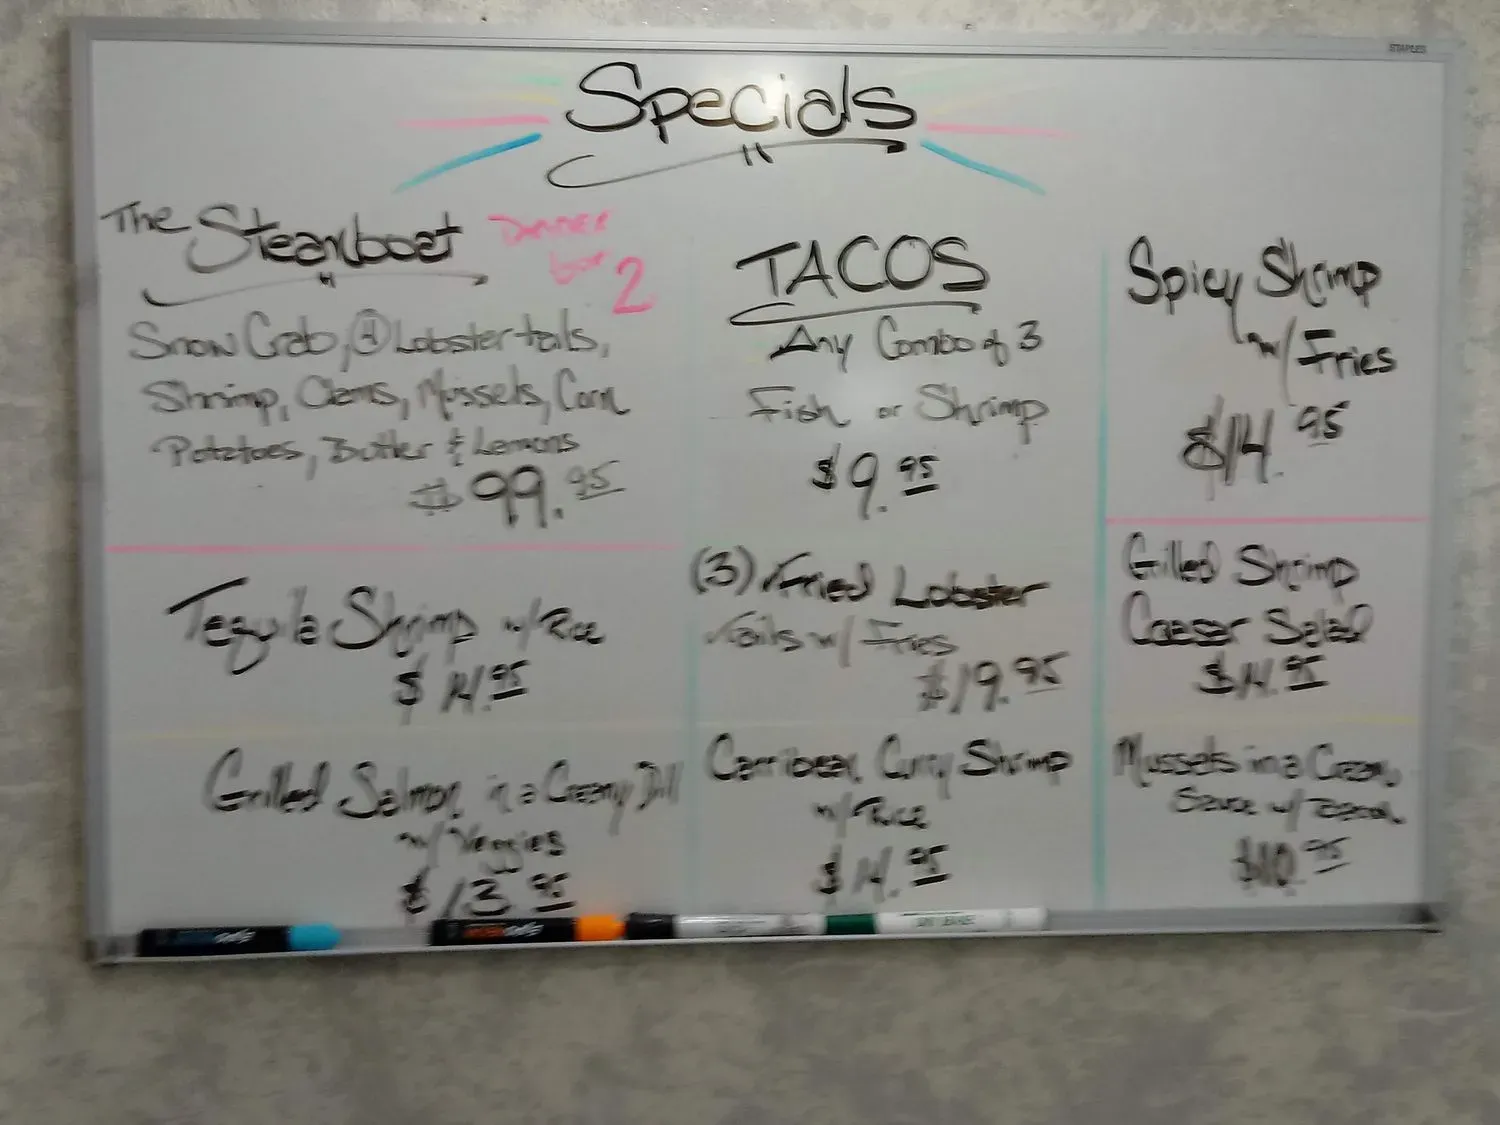 STAPLES
Specials
The Steamboat
Dinner
for 2
Snow Crab, (4) Lobster tails,
Shrimp, Clams, Mussels, Corn
Potatoes, Butter & Lemons
$99.95
TACOS
Any Combo of 3
Fish or Shrimp
$9.95
Spicy Shrimp
w/ Fries
$14.95
Tequila Shrimp w/ Rice
$14.95
(3) Fried Lobster
Tails w/ Fries
$19.95
Grilled Shrimp
Caesar Salad
$14.95
Grilled Salmon in a Creamy Dill
w/ Veggies
$13.95
Carribean Curry Shrimp
w/ Rice
$14.95
Mussels in a Cream
Sauce w/
$10.95